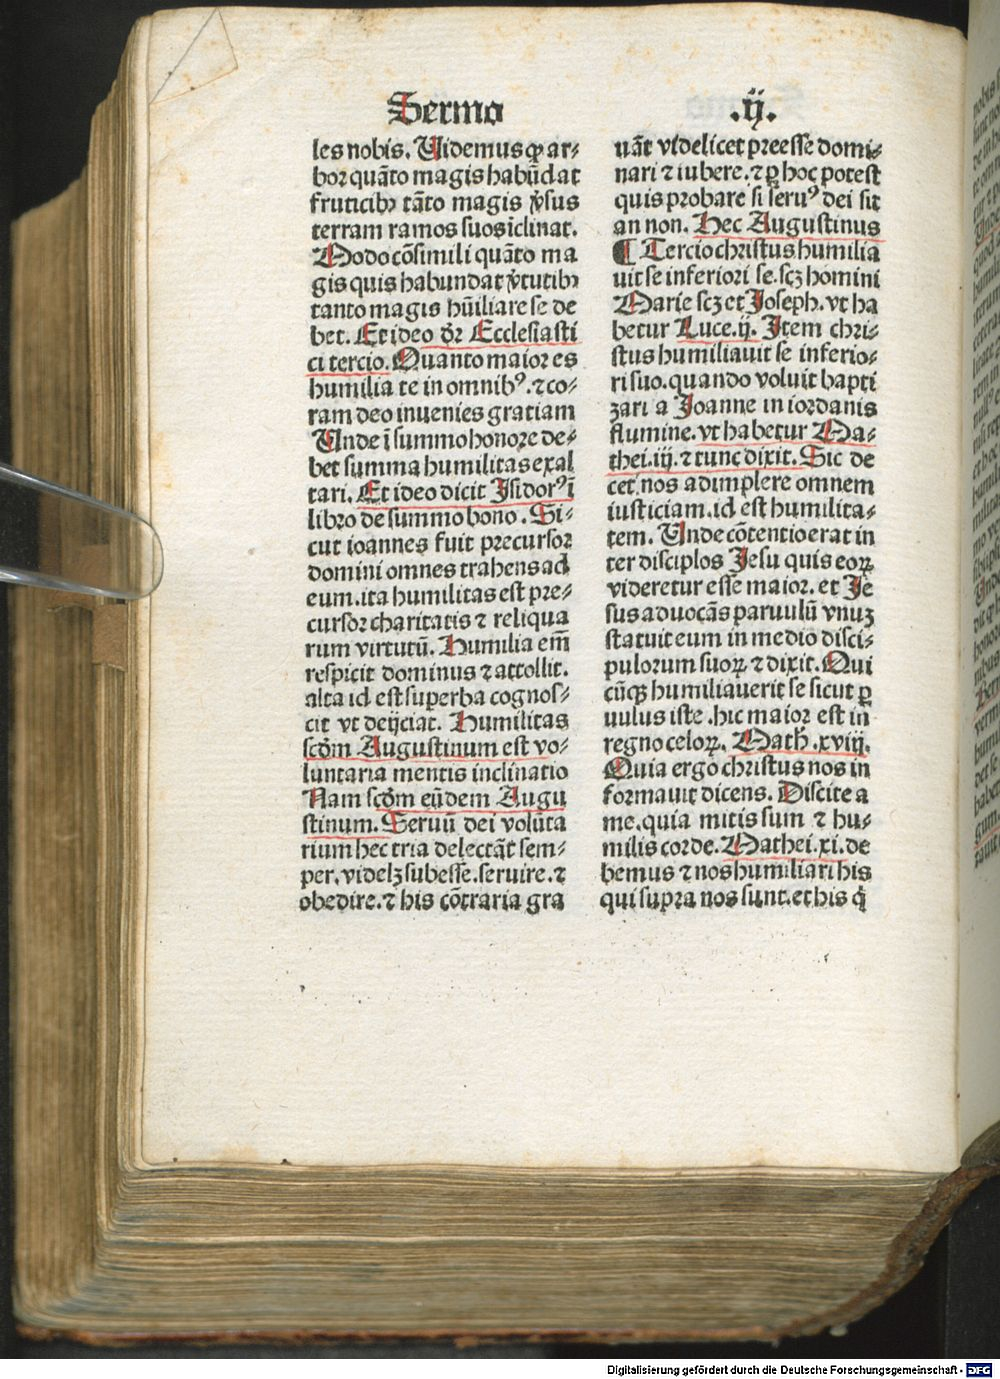 Sermo
.ij.
les nobis. Uidemus ꝙ ar⸗
bor quãto magis habũdat
fruticibꝫ tãto magis ṽsus
terram ramos suos ĩclinat.
Modo cõsimili quãto ma
gis quis habundat ṽtutibꝫ
tanto magis hũiliare se de
bet. Et ideo dr̃ Ecclesiasti
ci tercio. Quanto maior es
humilia te in omnibꝰ. ⁊ co⸗
ram deo inuenies gratiam
Unde ĩ summo honore de⸗
bet summa humilitas exal
tari. Et ideo dicit Isidorꝰ ĩ
libro de summo bono. Si⸗
cut ioannes fuit precursor
domini omnes trahens ad
eum. ita humilitas est pre⸗
cursor charitatis ⁊ reliqua
rum virtutũ. Humilia em̃
respicit dominus ⁊ attollit.
alta id est superba cognos⸗
cit vt deijciat. Humilitas
scd̃m Augustinum est vo⸗
luntaria mentis inclinatio
Nam scd̃m eũdem Augu
stinum. Seruũ dei volũta
rium hec tria delectãt sem⸗
per. videlꝫ subesse. seruire. ⁊
obedire. ⁊ his cõtraria gra
uãt videlicet preesse domi⸗
nari ⁊ iubere. ⁊ ꝑ hoc potest
quis probare si seruꝰ dei sit
an non. Hec Augustinus
¶ Tercio christus humilia
uit se inferiori se. scꝫ homini
Marie scꝫ et Joseph. vt ha
betur Luce. ij. Item chri⸗
stus humiliauit se inferio⸗
ri suo. quando voluit bapti
zari a Joanne in iordanis
flumine. vt habetur Ma⸗
thei. iij. ⁊ tunc dixit. Sic de
cet nos adimplere omnem
iusticiam. id est humilita⸗
tem. Unde cõtentio erat in
ter disciplos Jesu quis eoꝝ
videretur esse maior. et Je
sus aduocãs paruulũ vnuꝫ
statuit eum in medio disci⸗
pulorum suoꝝ ⁊ dixit. Qui
cũqꝫ humiliauerit se sicut ꝑ
uulus iste. hic maior est in
regno celoꝝ. Math̃. xviij.
Quia ergo christus nos in
formauit dicens. Discite a
me. quia mitis sum ⁊ hu⸗
milis corde. Mathei. xi. de
bemus ⁊ nos humiliari his
qui supra nos sunt. et his q̃
Digitalisierung gefördert durch die Deutsche Forschungsgemeinschaft - DFG